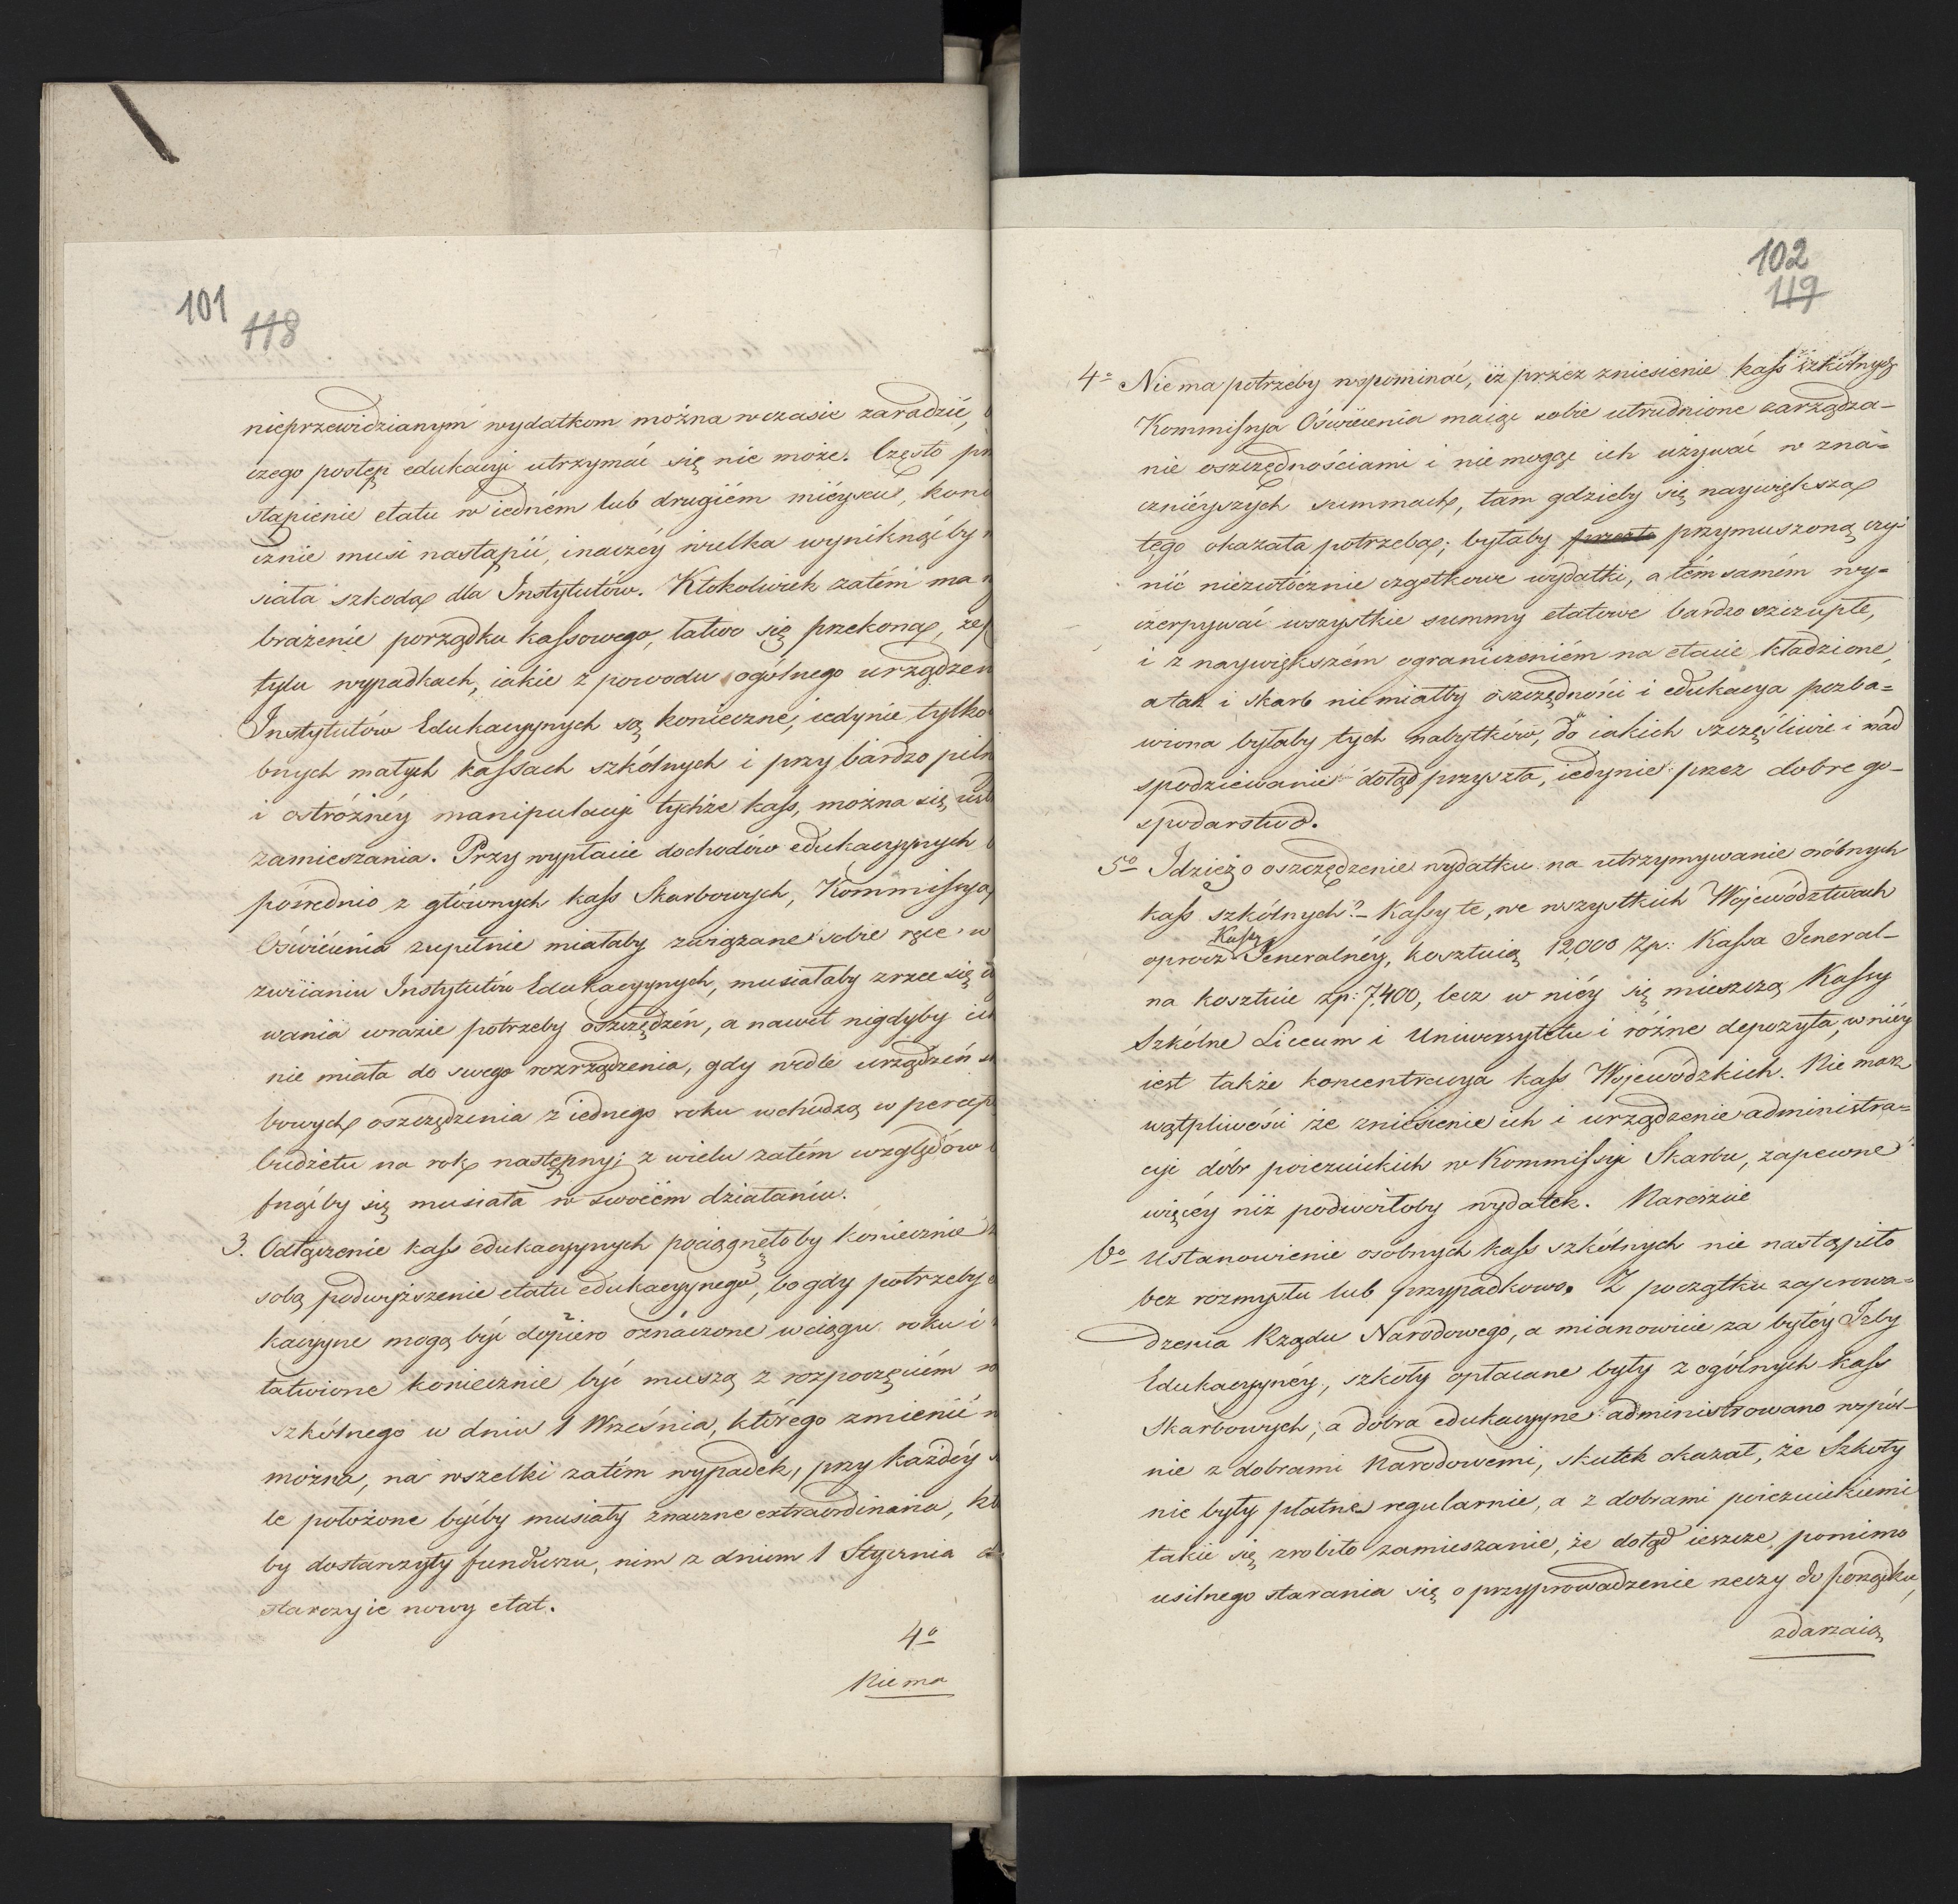 101
118
nieprzewidzianym wydatkom można w czasie zaradzić,
czego postęp edukacyi utrzymać się nie może. Często
stąpienie etatu w iedném lub drugiém mieyscu,
cznie musi nastąpić, inaczéy wielka wyniknąćby
siała szkoda dla Instytutów. Ktokolwiek zatém ma
brażenie porządku kassowego, łatwo się przekona,
tylu wypadkach, iakie z powodu ogólnego
Instytutów Edukacyynych są konieczne, iedynie tylko
bnych małych kassach szkólnych i przy bardzo
i ostróżnéy manipulacyi tychże kass, można się
zamieszania. Przy wypłacie dochodów edukacyynych
pośrednio z głównych kass Skarbowych, Kommissya
Oświécenia zupełnie miałaby związane sobie ręce w
zwiianiu Instytutów Edukacyynych, musiałaby zrzec się
wania w razie potrzeby oszczędzeń, a nawet nigdyby ich
nie miała do swego rozrządzenia, gdy wedle urządzeń
bowych oszczędzenia z iednego roku wchodzą w
budżetu na rok następny; z wielu zatém względów
fnąćby się musiała w swoiém działaniu.
3. Odłączenie kass edukacyynych pociągnęłoby koniecznie
sobą podwyższenie etatu edukacyynego, bo gdy potrzeby
kacyyne mogą być dopiero oznaczone w ciągu roku i
łatwione koniecznie być muszą z rozpoczęciém
szkólnego w dniu 1 Września, którego zmienić
można, na wszelki zatém wypadek, przy każdéy
le położone byćby musiały znaczne extraordinaria,
by dostarczyły funduszu, nim z dniem 1 Stycznia
starczy ie nowy etat.
4o
Nie ma
102
119
4o Nie ma potrzeby wspominać, iż przez zniesienie kass szkólnych
Kommissya Oświécenia maiąc sobie utrudnione zarządza-
nie oszczędnościami i nie mogąc ich używać w zna=
cznieyszych summach, tam gdzieby się naywiększa
tego okazała potrzeba; byłaby przymuszoną czy-
nić niezwłócznie cząstkowe wydatki, a tém samém wy=
czerpywać wszystkie summy etatowe bardzo szczupłe,
i z naywiększém ograniczeniém na etacie kładzione,
a tak i skarb nie miałby oszczędności i edukacya pozba=
wiona byłaby tych nabytków, do iakich szczęśliwie i nad
spodziewanie dotąd przyszła, iedynie przez dobre go-
spodarstwo.
5o Idzież o oszczędzenie wydatku na utrzymywanie osóbnych
kass szkólnych? - Kassy te, we wszystkich Województwach
oprócz Kassy Jeneralnéy, kosztuią 12,000 Zp: Kassa Jeneral-
na kosztuie zp: 7,400, lecz w niéy się mieszczą Kassy
Szkólne Liceum i Uniwersytetu i różne depozyta, w niéy
iest także koncentracya kass Wojewódzkich. Nie masz
wątpliwości że zniesienie ich i urządzenie administra=
cyi dóbr poiezuickich w Kommissyi Skarbu, zapewne
więcéy niż podwoiłoby wydatek. Nareszcie
6o Ustanowienie osobnych kass szkólnych nie nastąpiło
bez rozmysłu lub przypadkowo. Z początku zaprowa=
dzenia Rządu Narodowego, a mianowicie za byłéy Izby
Edukacyynéy, szkoły opłacane były z ogólnych kass
Skarbowych, a dobra edukacyyne administrowano wspól-
nie z dobrami Narodowemi, skutek okazał, że Szkoły
nie były płatne regularnie, a z dobrami poiezuickiemi
takie się zrobiło zamieszanie, że dotąd ieszcze, pomimo
usilnego starania się o przyprowadzenie rzeczy do porządku,
zdarzaią